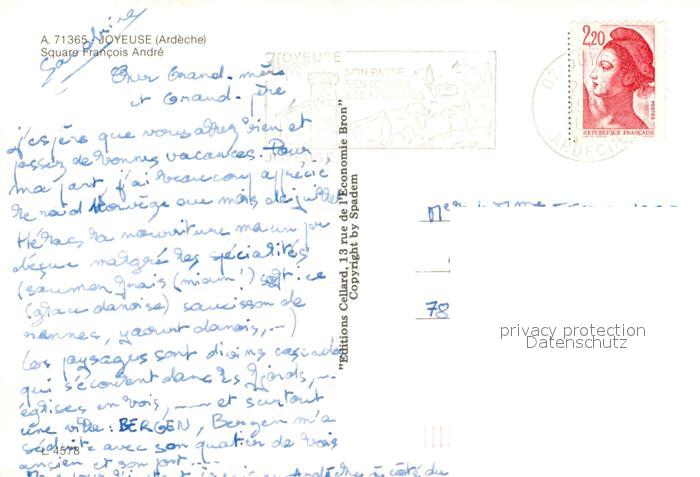 A. 71365 - JOYEUSE (Ardèche)
Square François André
Cher Grand-mère
et Grand-père,
J'espère que vous allez bien et
passez de bonnes vacances. Pour
ma part, j'ai beaucoup apprécié
le raid Norvège au mois de juillet
Hélas la nourriture m'a un peu
déçue malgré les spécialités
(saumon frais (miam!)
(glace danoise) saucisson de
rennes, yaourt danois, --)
Les paysages sont divins cascades
qui s'écoulent dans les fjords, --
églises en bois, -- et surtout
une ville: BERGEN, Bergen m'a
séduite avec son quartier de bois
ancien et son port ...
Ardèche à côté du
L 4578
"Editions Cellard, 13 rue de l'Economie Bron"
Copyright by Spadem
JOYEUSE
SON PASSE
2,20
POSTES
REPUBLIQUE FRANÇAISE
07 JOY
ARDECHE
78
privacy protection
Datenschutz